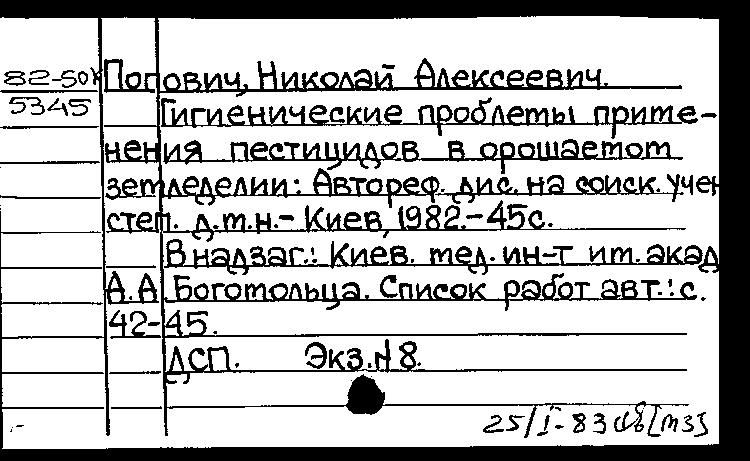 82-50к Попович, Николай Алексеевич.
5345 Гигиенические проблемы приме-
нения пестицидов в орошаемом
земледелии: Автореф. дис. на соиск. учен
степ. д.м.н.- Киев, 1982.-45с.
В надзаг.: Киев. мед. ин-т им. акад
А.А Богомольца. Список работ авт.: с.
42-45.
ДСП. Экз.N8.
25/I-83 [МЗ]